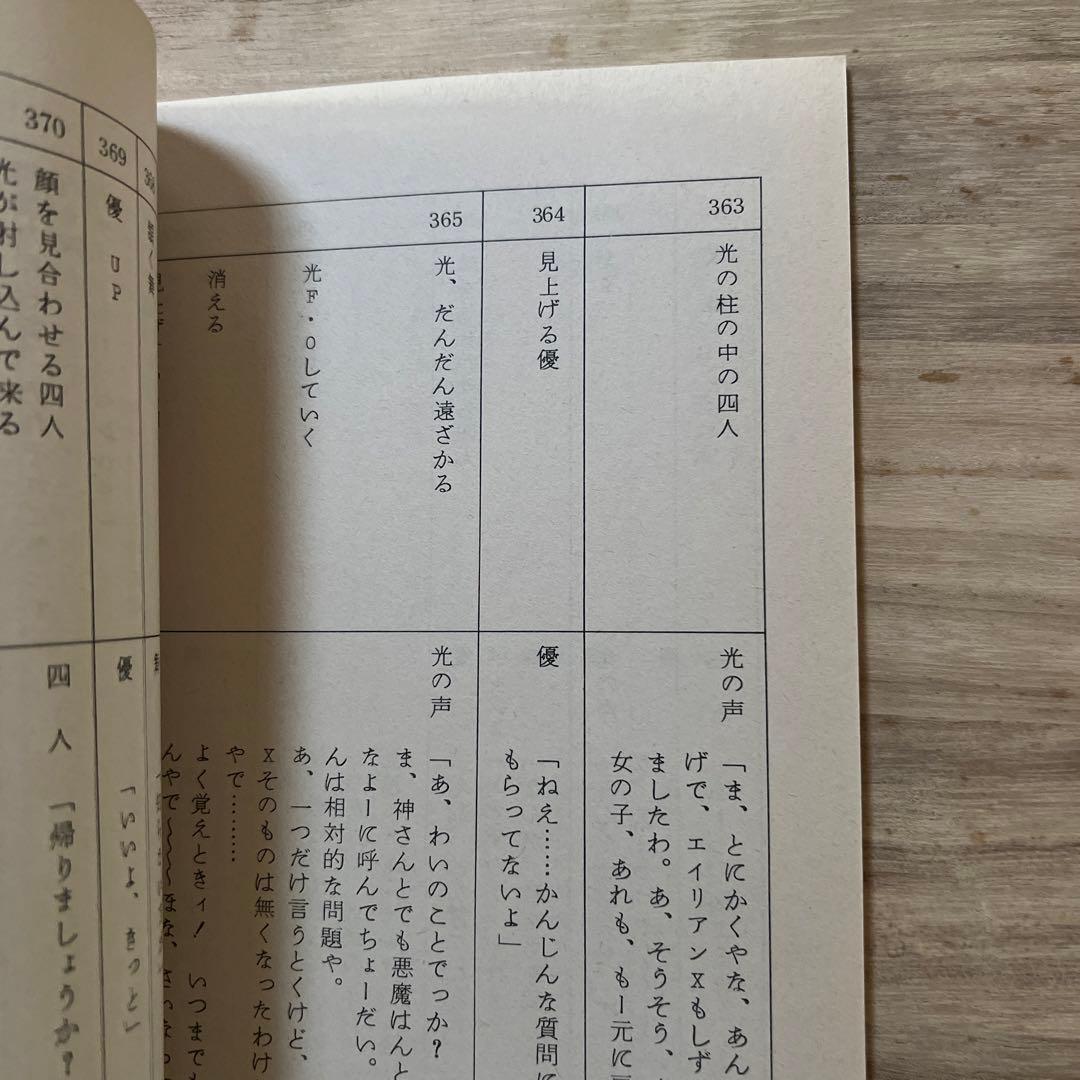 363
光の柱の中の四人
光の声
「ま、とにかくやな、あん
げで、エイリアンXもしず
ましたわ。あ、そうそう、
女の子、あれも、もー元に
364
見上げる優
優
「ねえ……かんじんな質問に
もらってないよ」
365
光、だんだん遠ざかる
光F・Oしていく
消える
光の声
「あ、わいのことでっか?
ま、神さんとでも悪魔はんと
なよーに呼んでちょーだい。
んは相対的な問題や。
あ、一つだけ言うとくけど、
Xそのものは無くなったわけ
やで………
よく覚えときィ! いつまでも
んやで〜〜〜ほな、さいなっ
369
優 UP
優
「いいよ、きっと」
370
顔を見合わせる四人
光が射し込んで来る
四人
「帰りましょうか?